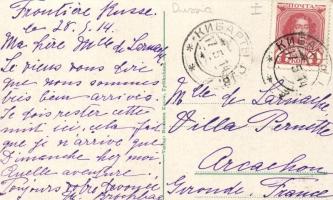 Russie
Frontière Russe
le 28.5.14.
Ma chère Mlle de Larnach
Je viens vous dire
que nous sommes
bien arrivés.
Je dois rester cette
nuit ici, cela fait
que je n'arrive que
Dimanche chez moi
Quelle aventure.
Toujours votre
КИБАРТЫ
КИБАРТЫ
Mlle de Larnach
Villa Pernette
Arcachon
Gironde. France